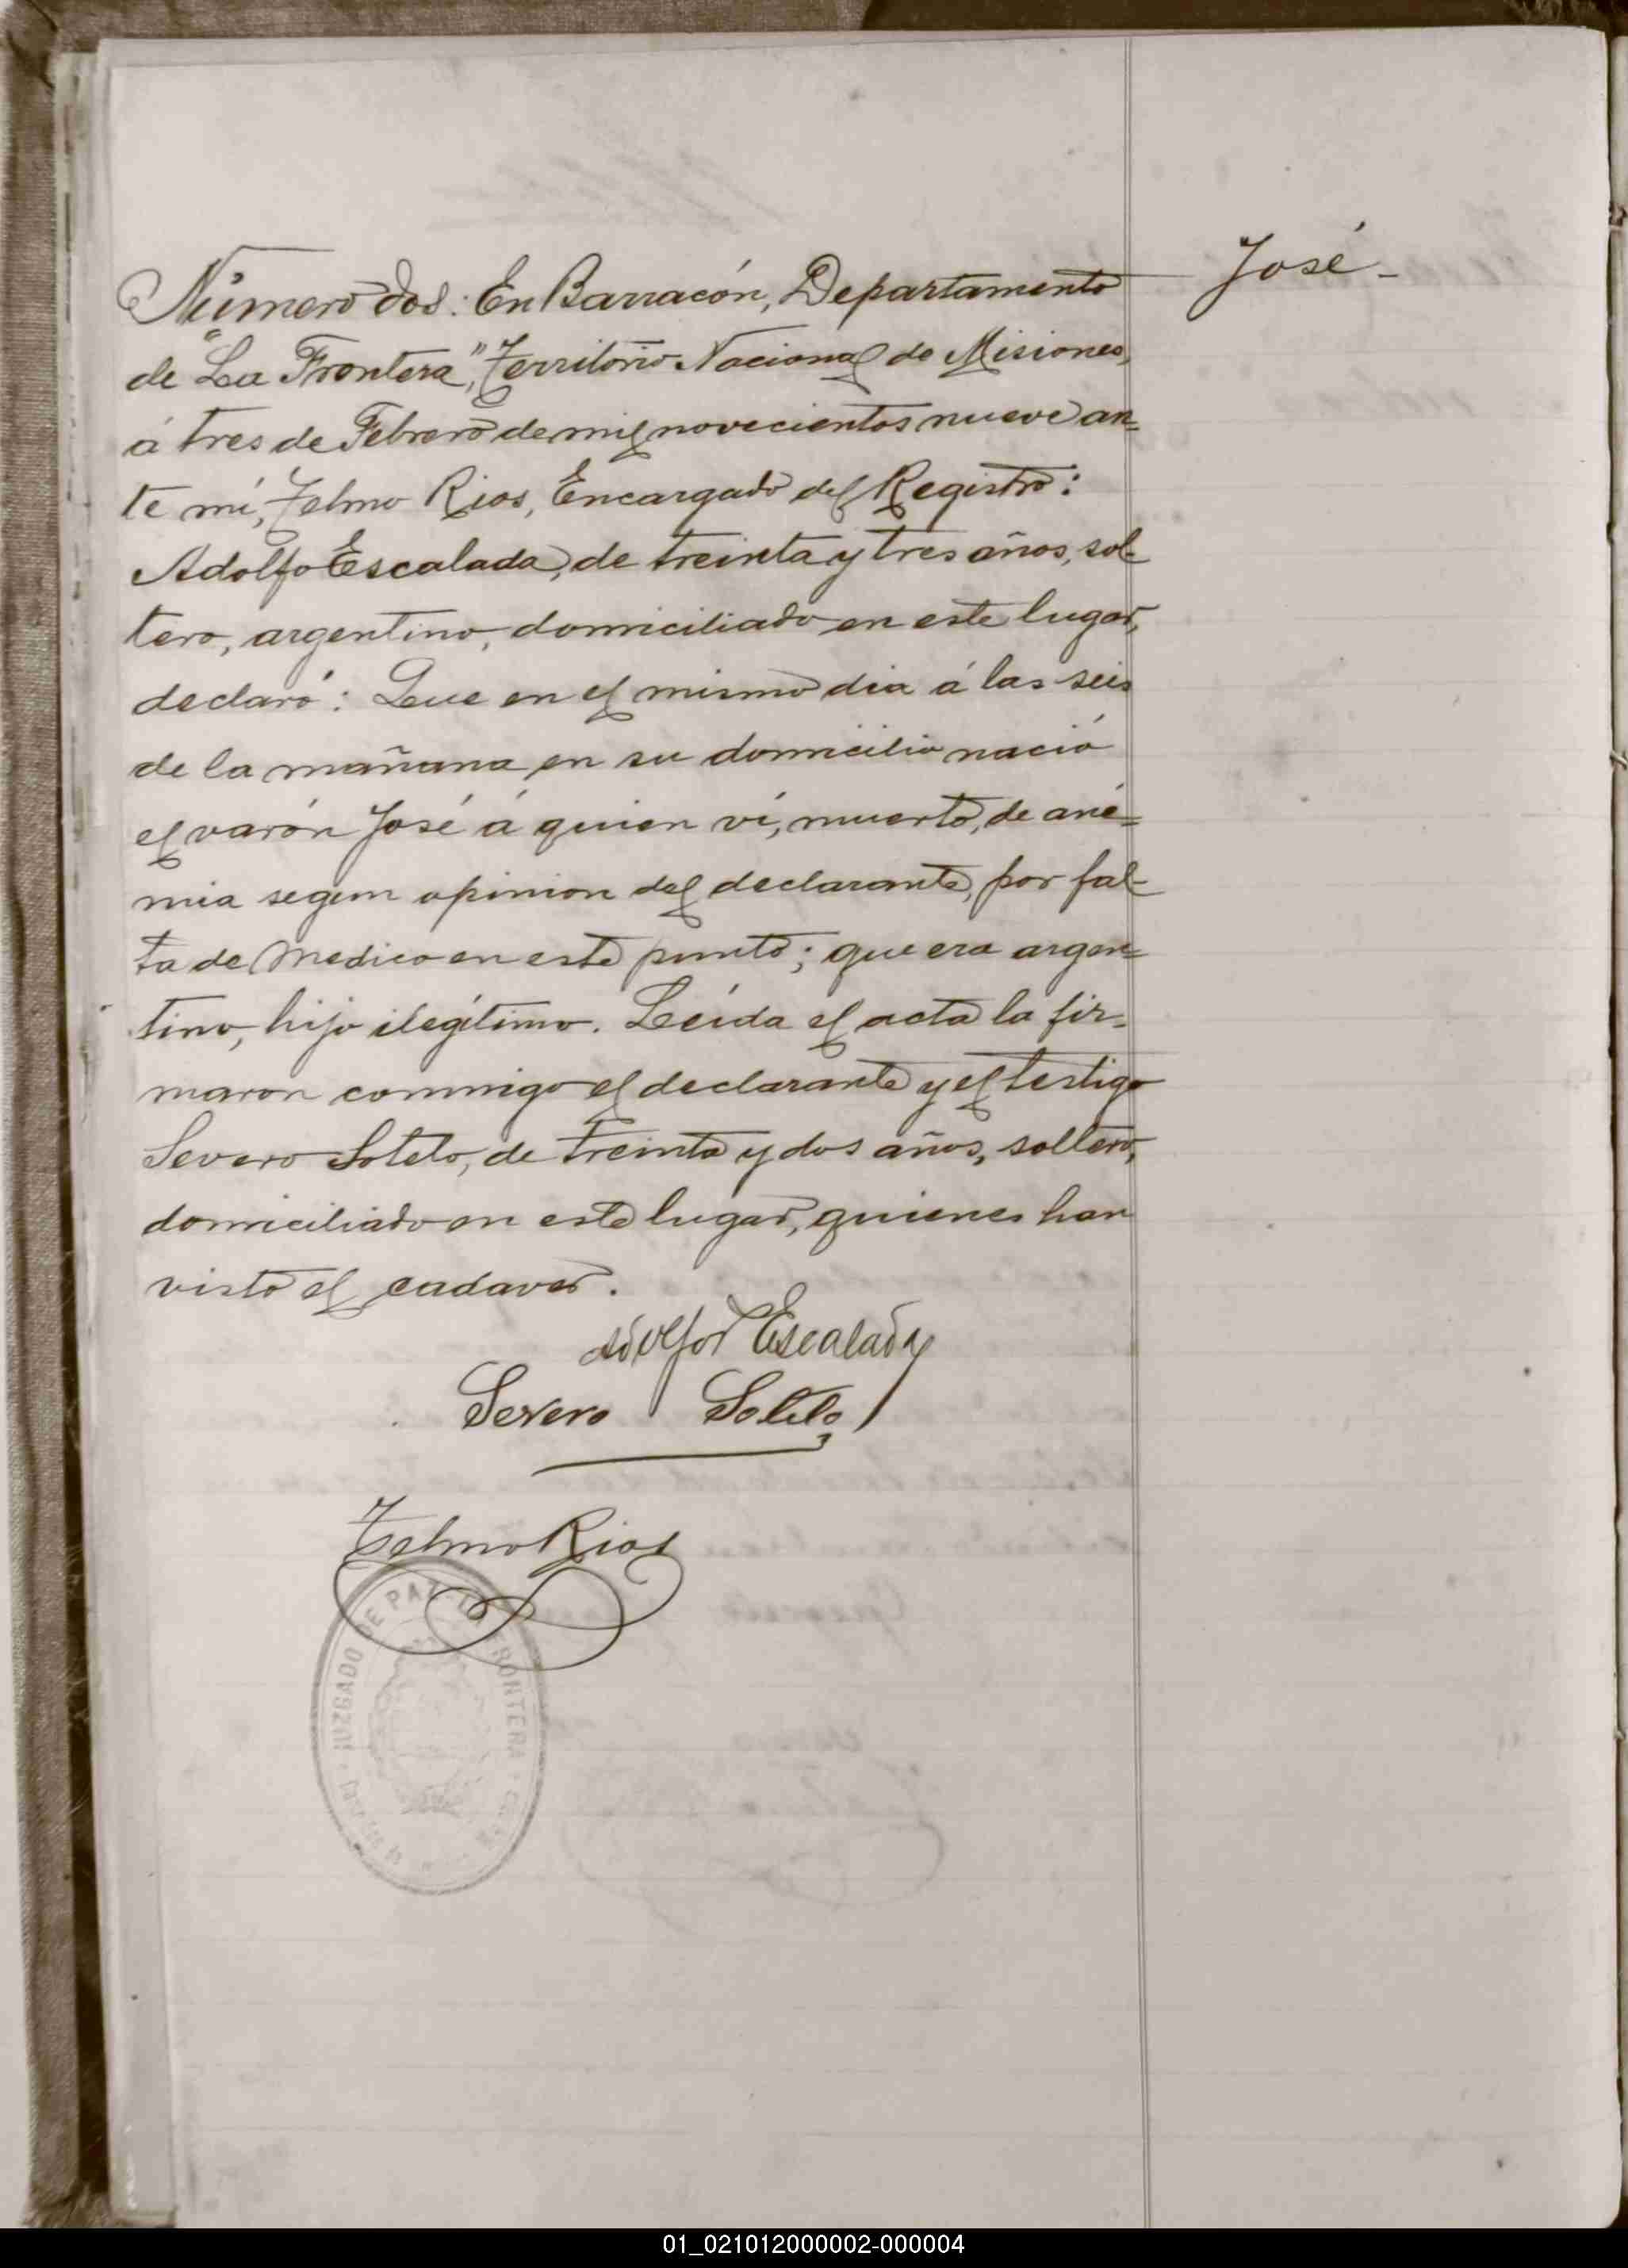 José-
Número dos: En Barracón, Departamento
de "La Frontera", Territorio Nacional de Misiones,
á tres de Febrero de mil novecientos nueve an=
te mí, Telmo Rios, Encargado del Registro:
Adolfo Escalada, de treinta y tres años, sol-
tero, argentino, domiciliado en este lugar,
declaró: Que en el mismo dia á las seis
de la mañana en su domicilio nació
el varón José á quien ví, muerto, de ané=
mia segun opinion del declarante, por fal-
ta de Medico en este punto; que era argen=
tino, hijo ilegítimo. Leída el acta la fir-
maron conmigo el declarante y el testigo
Severo Sotelo, de treinta y dos años, soltero,
domiciliado en este lugar, quienes han
visto el cadaver.
Adolfo Escalada
Severo Sotelo
Telmo Rios
JUZGADO DE PAZ LA FRONTERA
01_021012000002-000004